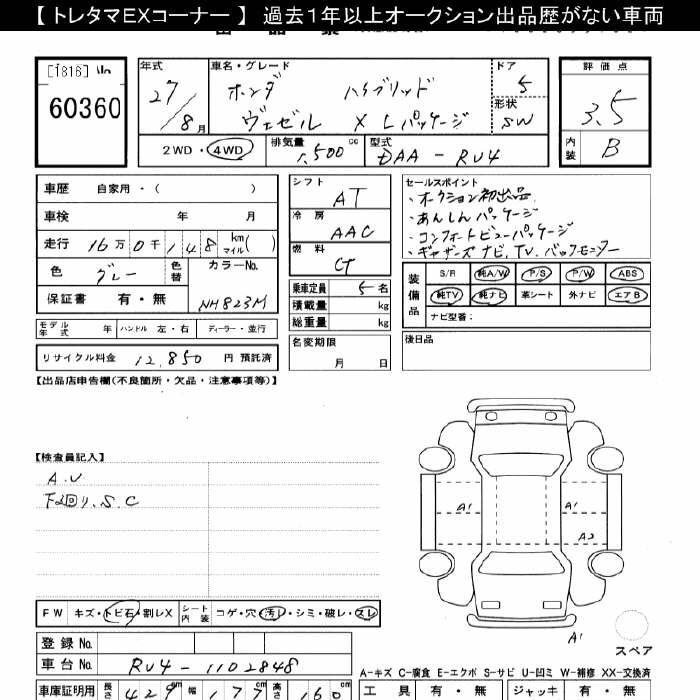 【 トレタマＥＸコーナー 】 過去１年以上オークション出品歴がない車両
[1816] No
60360
年式
27/8月
車名・グレード
ホンダ ハイブリッド
ヴェゼル X Lパッケージ
ドア
5
形状
SW
2WD・4WD
排気量
1,500cc
型式
DAA-RU4
評価点
3.5
内装
B
車歴 自家用・( )
車検 年 月
走行 16万0千148 km マイル( )
色 グレー
色替
カラーNo.
NH823M
保証書 有・無
モデル年式 年
ハンドル 左・右
ディーラー・並行
リサイクル料金 12,850 円 預託済
シフト
AT
冷房
AAC
燃料
G
乗車定員 5 名
積載量 kg
総重量 kg
名変期限
月 日
セールスポイント
・オークション初出品
・あんしんパッケージ
・コンフォートビューパッケージ
・ギャザーズナビ, TV, バックモニター
装備品
S/R 純A/W P/S P/W ABS
純TV 純ナビ 革シート 外ナビ エアB
ナビ型番：
後日品
【出品店申告欄(不良箇所・欠品・注意事項等)】
【検査員記入】
A.U
下回り.S.C
A1
A1
A2
A1
スペア
FW キズ・トビ石・割レX
シート内装 コゲ・穴・汚レ・シミ・破レ・スレ
登録 No.
車台 No. RU4-1102848
A-キズ C-腐食 E-エクボ S-サビ U-凹ミ W-補修 XX-交換済
車庫証明用 長さ 429cm 幅 177cm 高さ 160cm
工具 有・無 ジャッキ 有・無